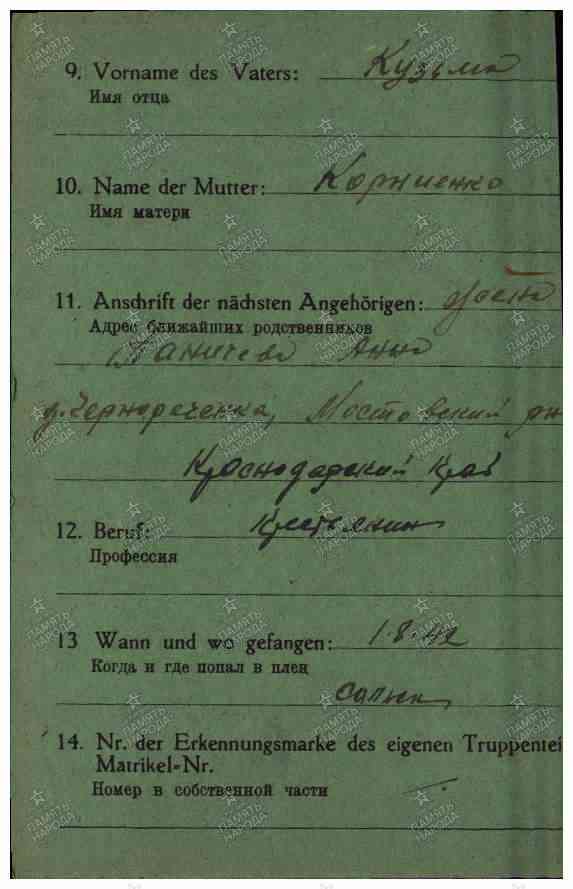 9. Vorname des Vaters: Кузьма
Имя отца
10. Name der Mutter: Корниенко
Имя матери
11. Anschrift der nächsten Angehörigen:
Адрес ближайших родственников
Паничева Анна
д. Чернореченка, Мостовский рн
Краснодарский край
12. Beruf: Крестьянин
Профессия
13 Wann und wo gefangen: 1.8.42
Когда и где попал в плен
Сальск
14. Nr. der Erkennungsmarke des eigenen Truppentei
Matrikel-Nr.
Номер в собственной части